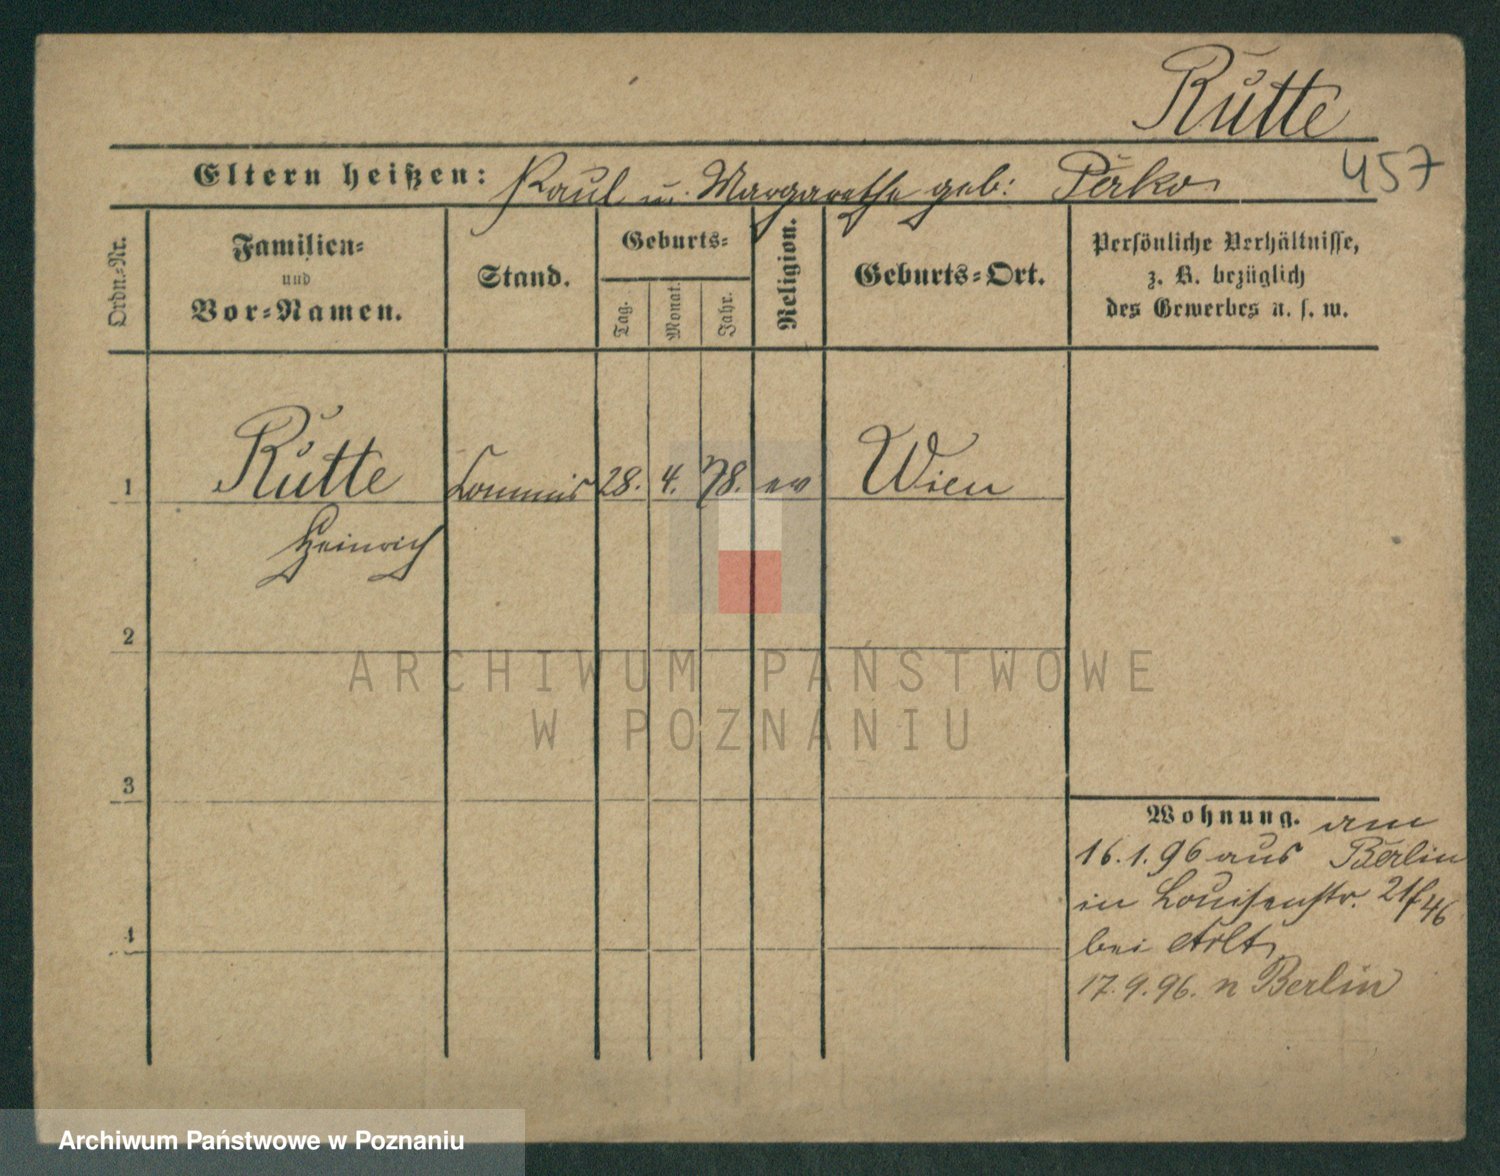 Rutte
457
Eltern heißen: Paul u. Margarethe geb: Perko
Ordn.-Nr.
Familien-
und
Vor-Namen.
Stand.
Geburts-
Tag.
Monat.
Jahr.
Religion.
Geburts-Ort.
Persönliche Verhältnisse,
z. B. bezüglich
des Gewerbes u. s. w.
1 Rutte Commis 28. 4. 78. ev Wien
Heinrich
2
3
4
Wohnung. am
16.1.96 aus Berlin
in Louisenstr. 21/46
bei Arlt
17.9.96. n Berlin
ARCHIWUM PAŃSTWOWE
W POZNANIU
Archiwum Państwowe w Poznaniu